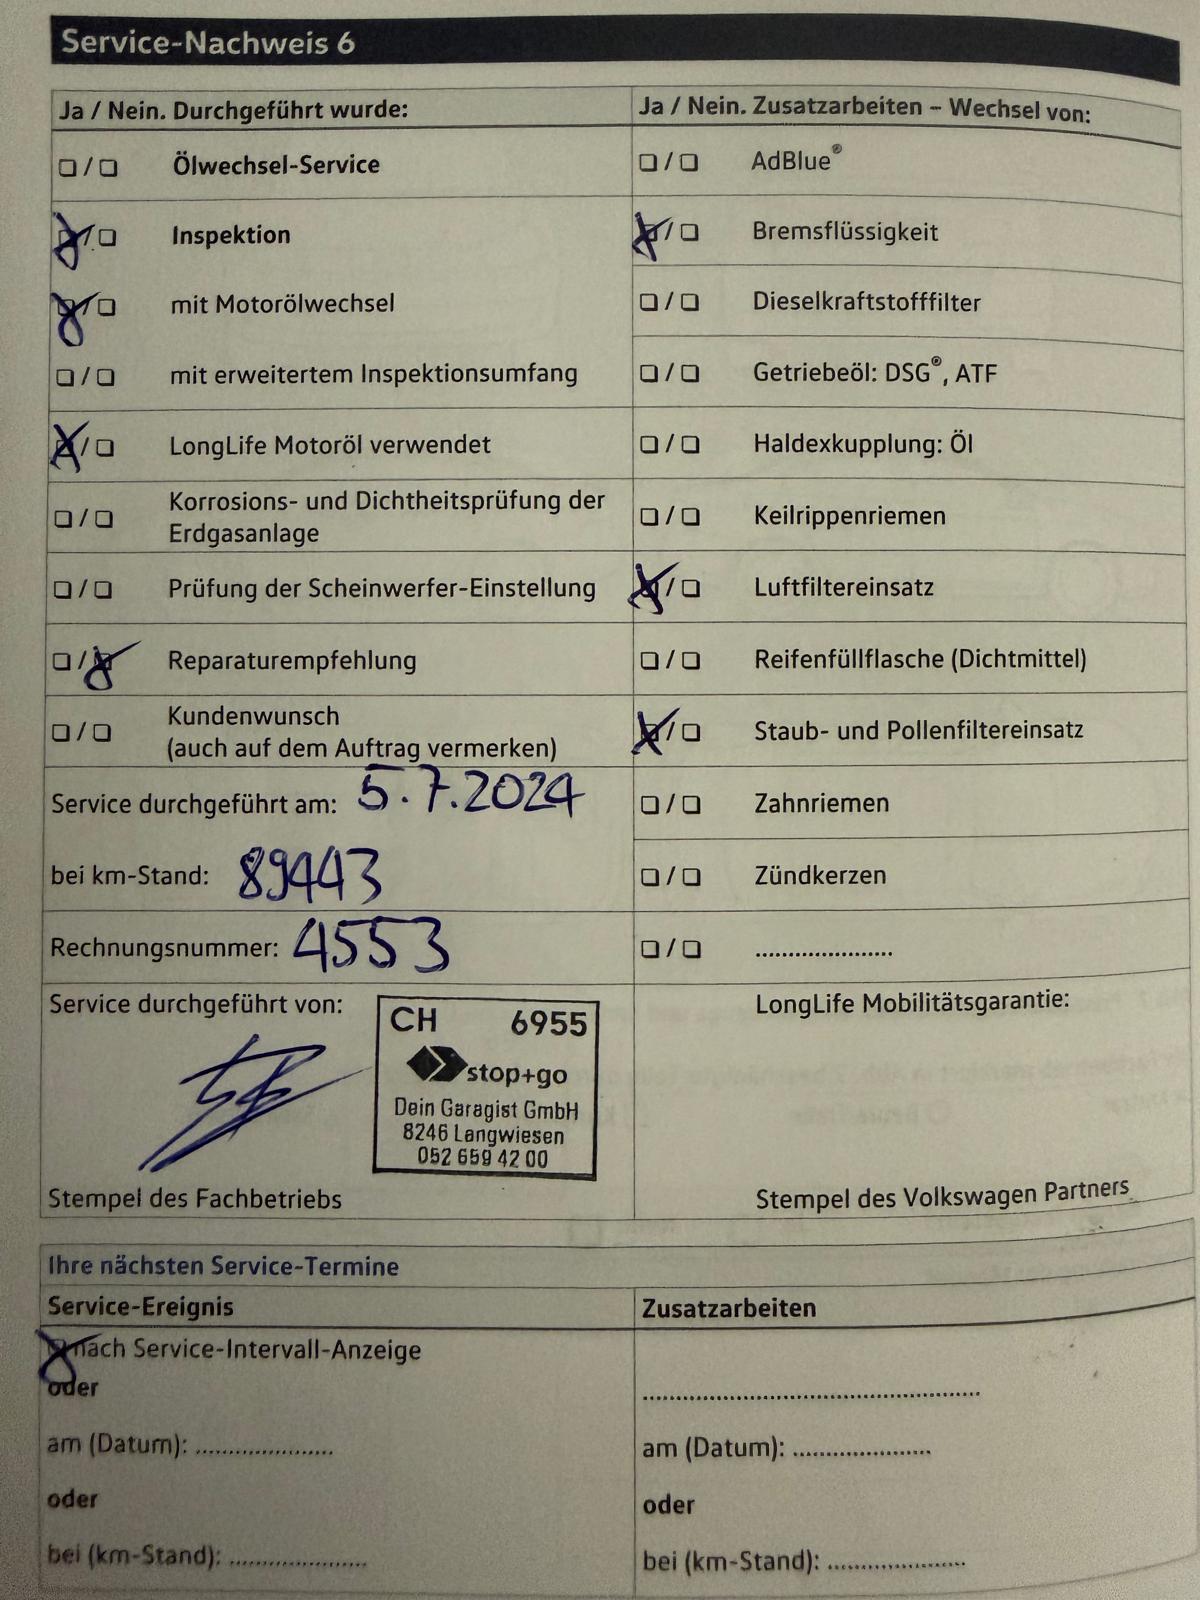 Service-Nachweis 6
Ja / Nein. Durchgeführt wurde:
Ölwechsel-Service
Inspektion
mit Motorölwechsel
mit erweitertem Inspektionsumfang
LongLife Motoröl verwendet
Korrosions- und Dichtheitsprüfung der
Erdgasanlage
Prüfung der Scheinwerfer-Einstellung
Reparaturempfehlung
Kundenwunsch
(auch auf dem Auftrag vermerken)
Service durchgeführt am: 5.7.2024
bei km-Stand: 89443
Rechnungsnummer: 4553
Service durchgeführt von:
CH 6955
stop+go
Dein Garagist GmbH
8246 Langwiesen
052 659 42 00
Stempel des Fachbetriebs
Ja / Nein. Zusatzarbeiten – Wechsel von:
AdBlue®
Bremsflüssigkeit
Dieselkraftstofffilter
Getriebeöl: DSG®, ATF
Haldexkupplung: Öl
Keilrippenriemen
Luftfiltereinsatz
Reifenfüllflasche (Dichtmittel)
Staub- und Pollenfiltereinsatz
Zahnriemen
Zündkerzen
......................
LongLife Mobilitätsgarantie:
Stempel des Volkswagen Partners
Ihre nächsten Service-Termine
Service-Ereignis
nach Service-Intervall-Anzeige
oder
am (Datum): ......................
oder
bei (km-Stand): ......................
Zusatzarbeiten
......................................................
am (Datum): ......................
oder
bei (km-Stand): ......................